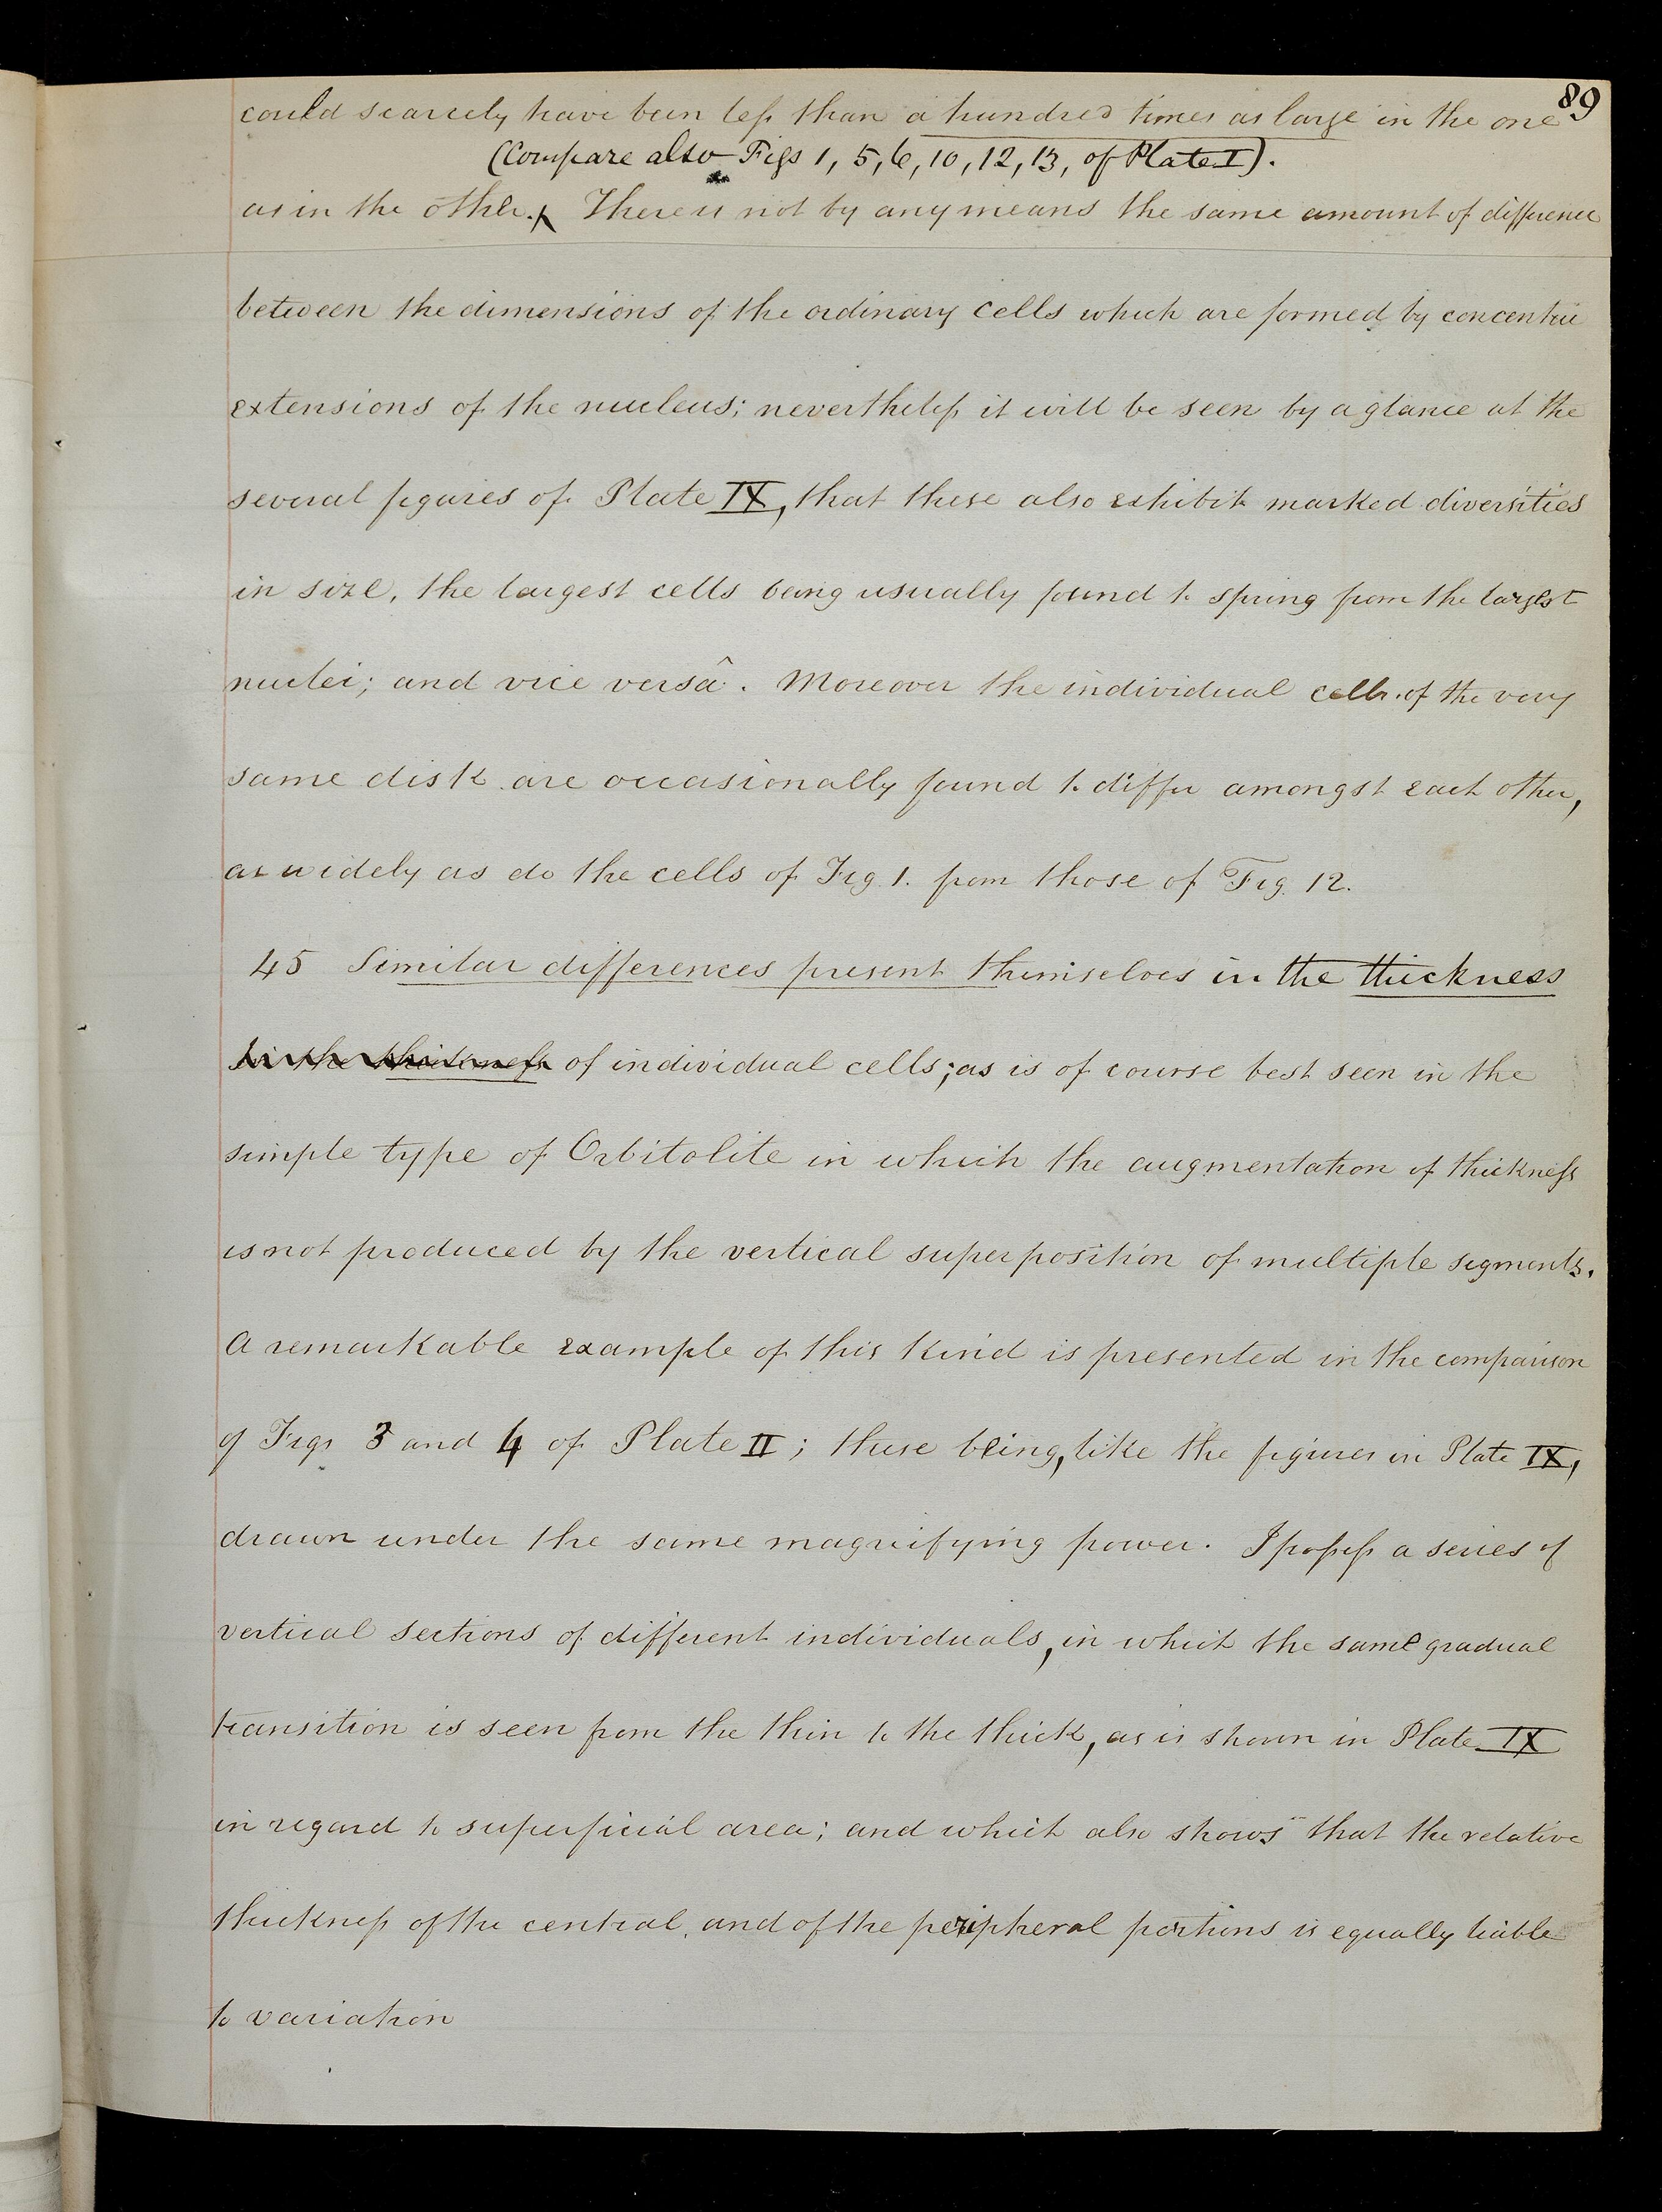 89
could scarcely have been less than a hundred times as large in the one
(Compare also Figs 1, 5, 6, 10, 12, 13, of Plate I).
as in the other. There is not by any means the same amount of difference
between the dimensions of the ordinary cells which are formed by concentric
extensions of the nucleus; nevertheless it will be seen by a glance at the
several figures of Plate IX, that these also exhibit marked diversities
in size, the largest cells being usually found to spring from the largest
nuclei; and vice versâ. Moreover the individual cells of the very
same disk are occasionally found to differ amongst each other,
as widely as do the cells of Fig 1. from those of Fig. 12.
45 Similar differences present themselves in the thickness
in the thickness of individual cells; as is of course best seen in the
simple type of Orbitolite in which the augmentation of thickness
is not produced by the vertical superposition of multiple segments.
A remarkable example of this kind is presented in the comparison
of Figs 3 and 4 of Plate II; these being, like the figures in Plate IX,
drawn under the same magnifying power. I possess a series of
vertical sections of different individuals, in which the same gradual
transition is seen from the thin to the thick, as is shown in Plate IX
in regard to superficial area; and which also shows that the relative
thickness of the central, and of the peripheral portions is equally liable
to variation